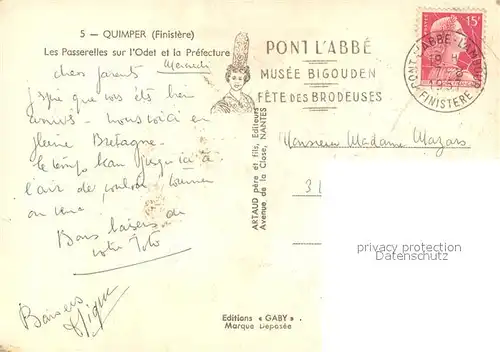 5 — QUIMPER (Finistère)
Les Passerelles sur l'Odet et la Préfecture
Mercredi
chers parents
que vous êts bien
nous voici en
pleine Bretagne
le temps beau jusqu'ici à
l'air de vouloir tourner
au
Bons baisers de
votre Toto
Baisers
PONT L'ABBÉ
MUSÉE BIGOUDEN
FÊTE DES BRODEUSES
15F
PONT-L'ABBE-LAMBOUR
18 H
FINISTERE
Monsieur Madame Mazars
31
ARTAUD père et fils, Editeurs
Avenue de la Close, NANTES
Editions « GABY »
Marque Déposée
privacy protection
Datenschutz